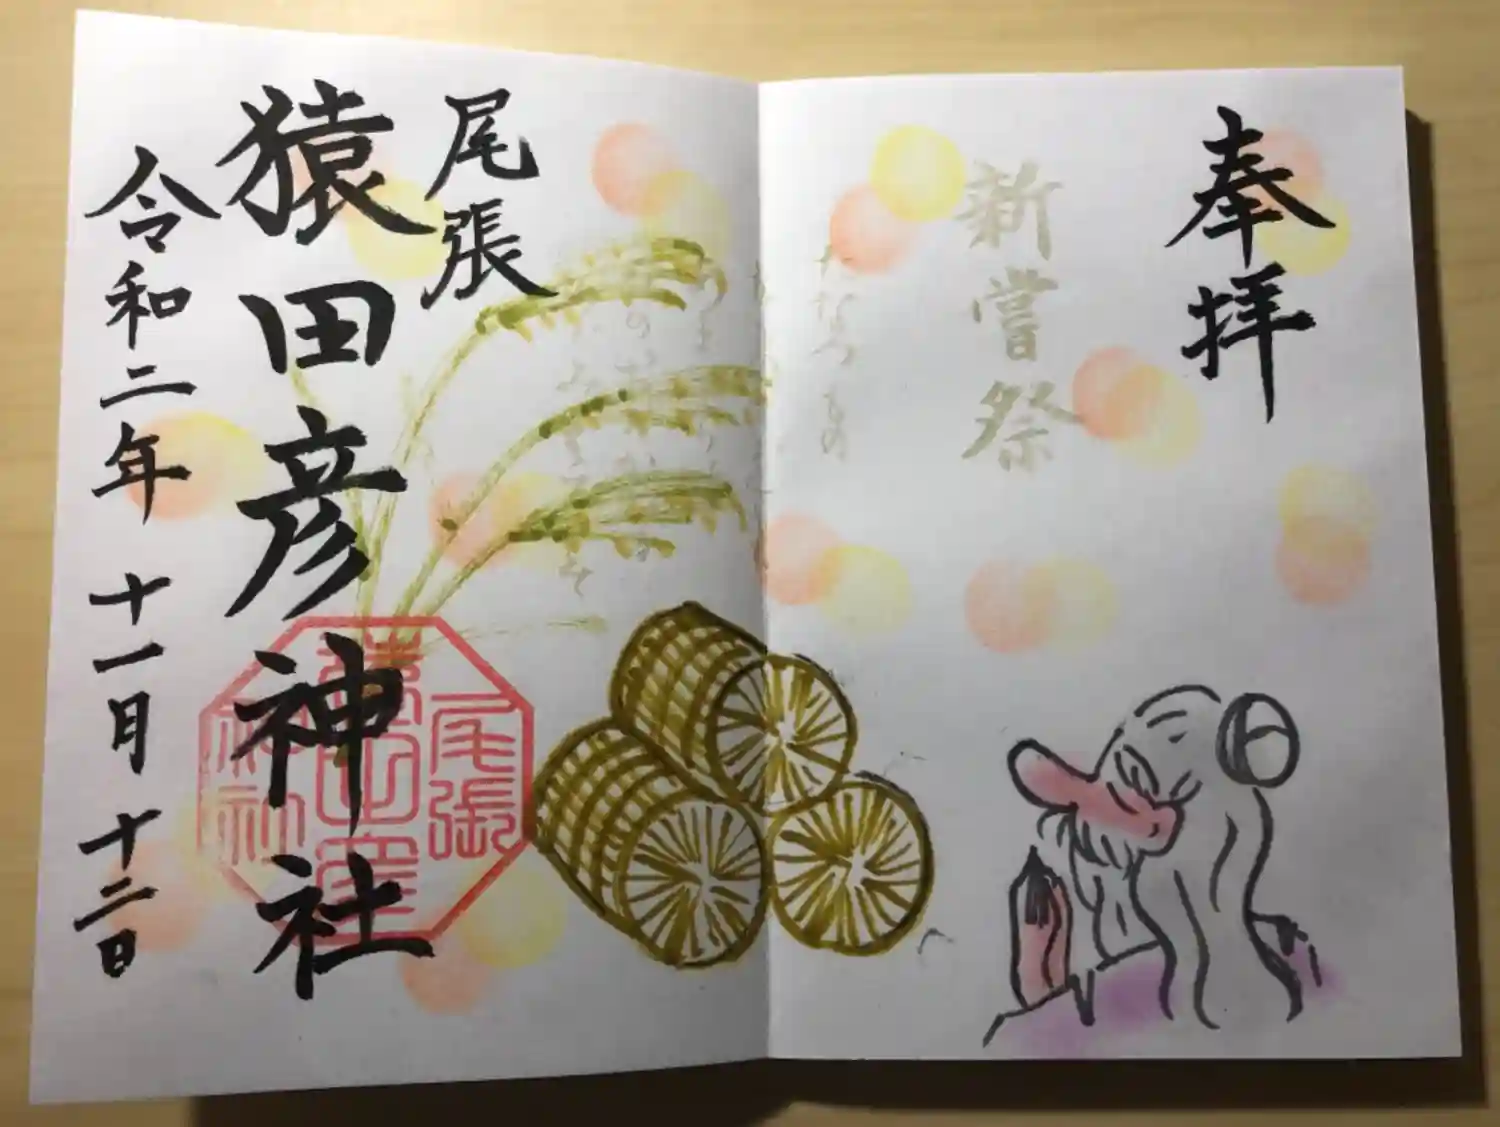 奉拝
新嘗祭
尾張
猿田彦神社
令和二年 十一月 十二日
尾張
猿田彦
神社